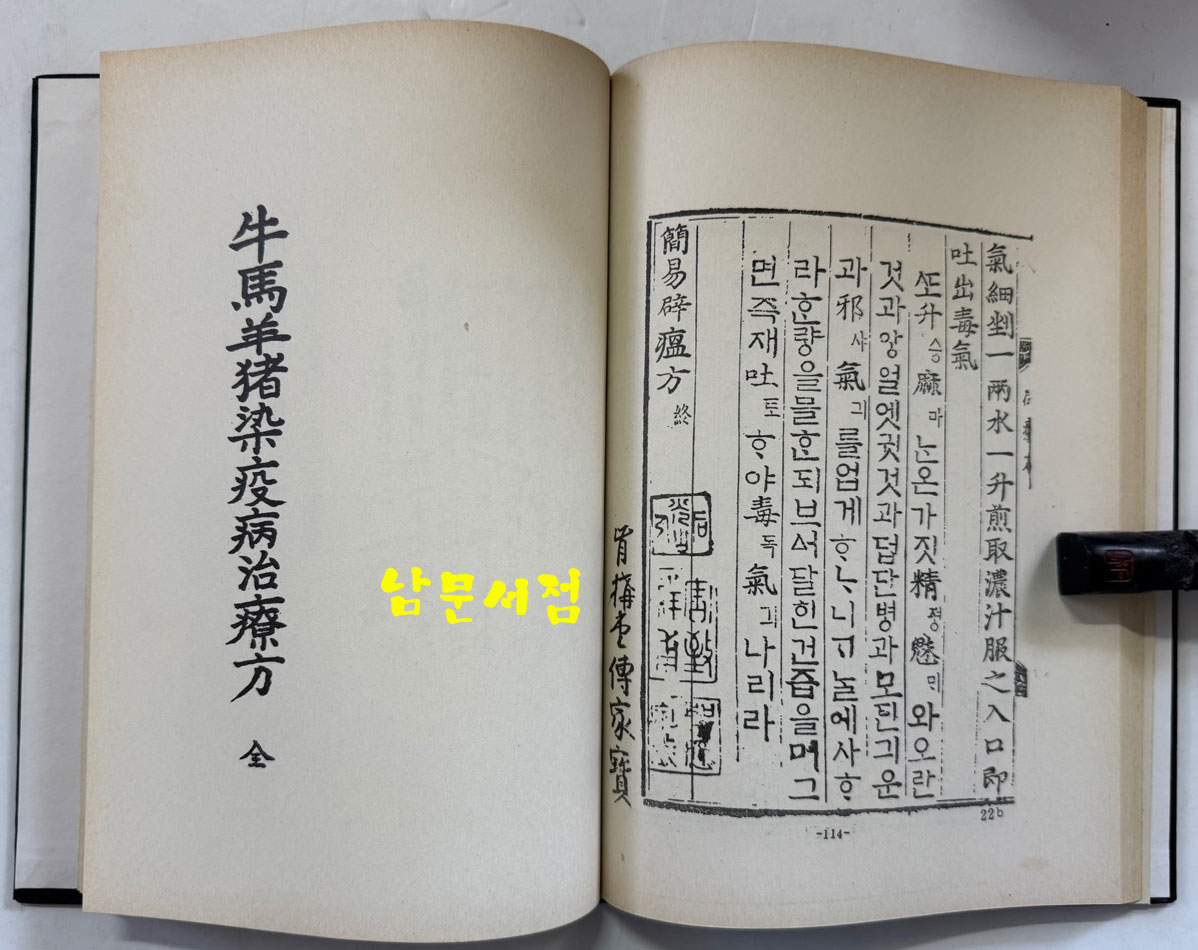 氣細剉一兩水一升煎取濃汁服之入口即
吐出毒氣
ᄯᅩ升승麻마ᄂᆞᆫ온가짓精졍魅ᄆᆡ와오란
것과앙얼엣귓것과덥단병과모딘긔운
과邪샤氣긔를업게ᄒᆞᄂᆞ니ᄀᆞᄂᆞᆯ에사ᄒᆞ
라ᄒᆞᆫ량을믈ᄒᆞᆫ되브ᅀᅥ달힌건즙을머그
면즉재吐토ᄒᆞ야毒독氣긔나리라
簡易辟瘟方 終
傳家寶
22b
-114-
牛馬羊猪染疫病治療方 全
남문서점